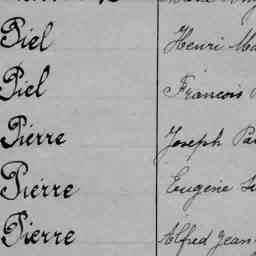 Piel Henri
Piel François
Pierre Joseph
Pierre Eugène
Pierre Alfred Jean